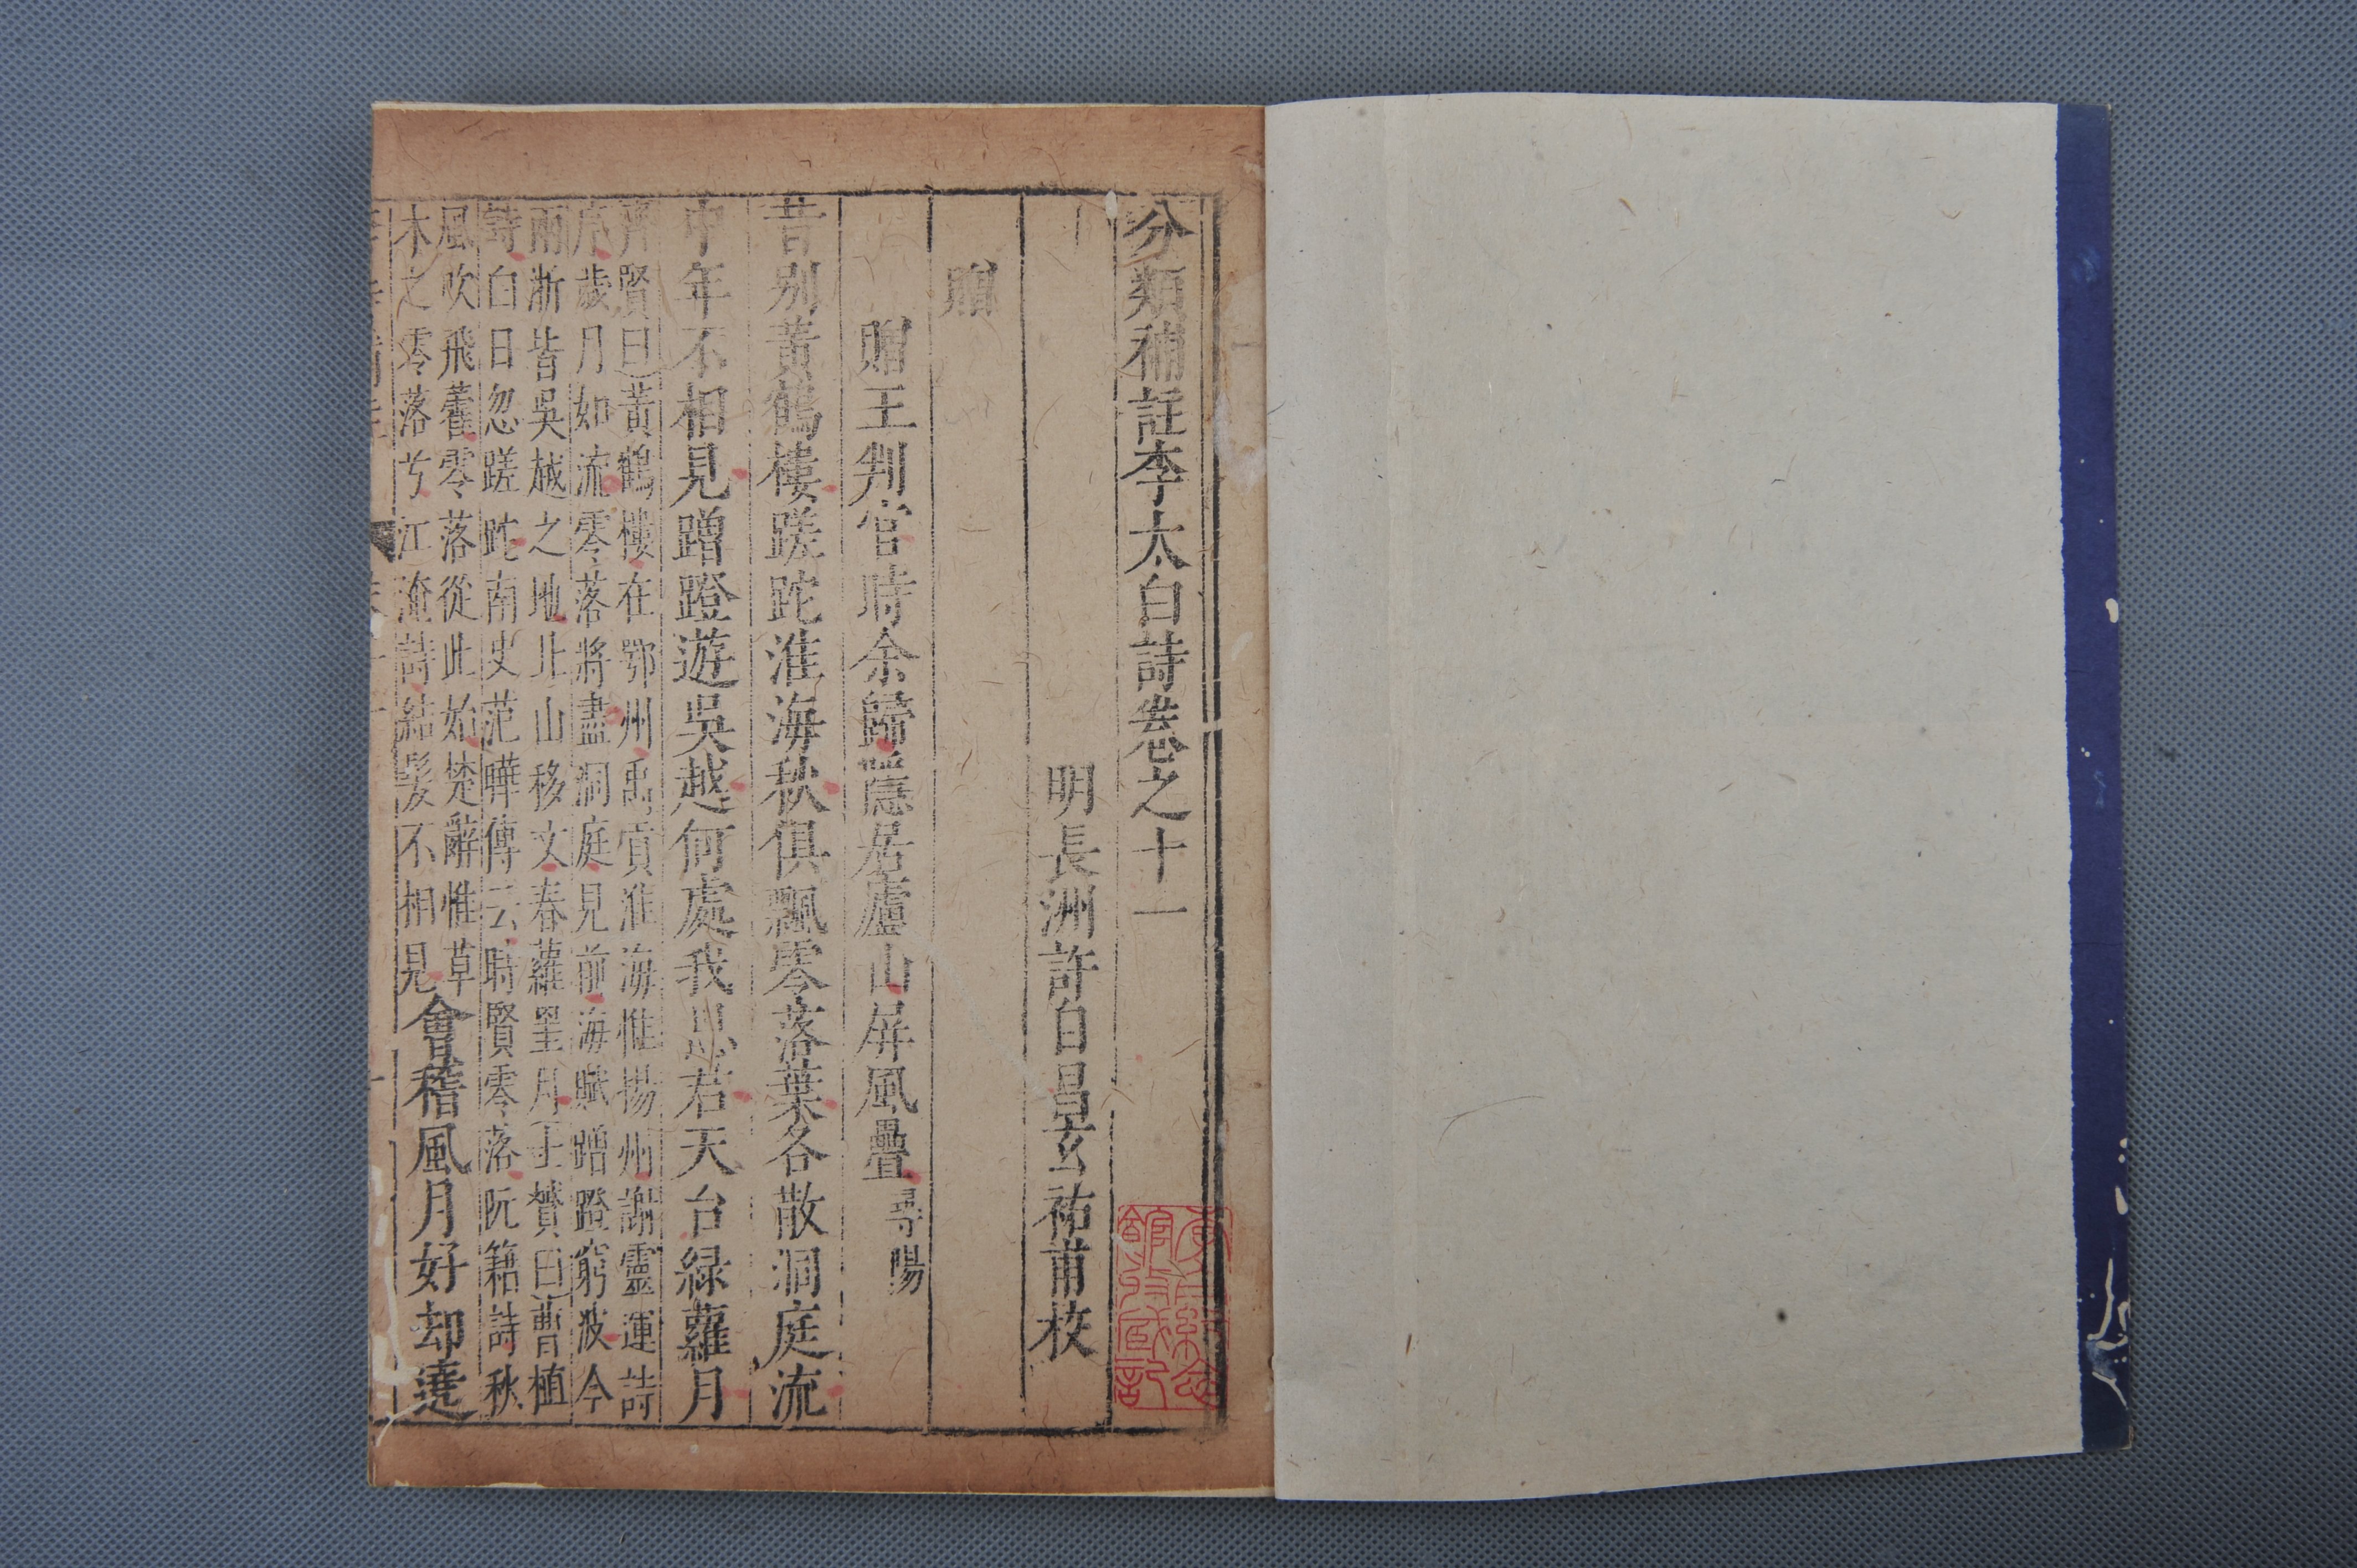 分類補註李太白詩卷之十一
明長洲許自昌玄祐甫校
贈
贈王判官時余歸隱居廬山屏風疊尋陽
昔別黃鶴樓蹉跎淮海秋俱飄零落葉各散洞庭流
中年不相見蹭蹬遊吳越何處我思君天台緑蘿月
齊賢曰黃鶴樓在鄂州禹貢淮海惟揚州謝靈運詩
序歲月如流零落將盡洞庭見前海賦蹭蹬窮波今
兩浙皆吳越之地北山移文春蘿罷月士贇曰曹植
詩白日忽蹉跎南史范曄傳云時賢零落阮籍詩秋
風吹飛藿零落從此始楚辭惟草
木之零落兮江淹詩結髮不相見會稽風月好却遶